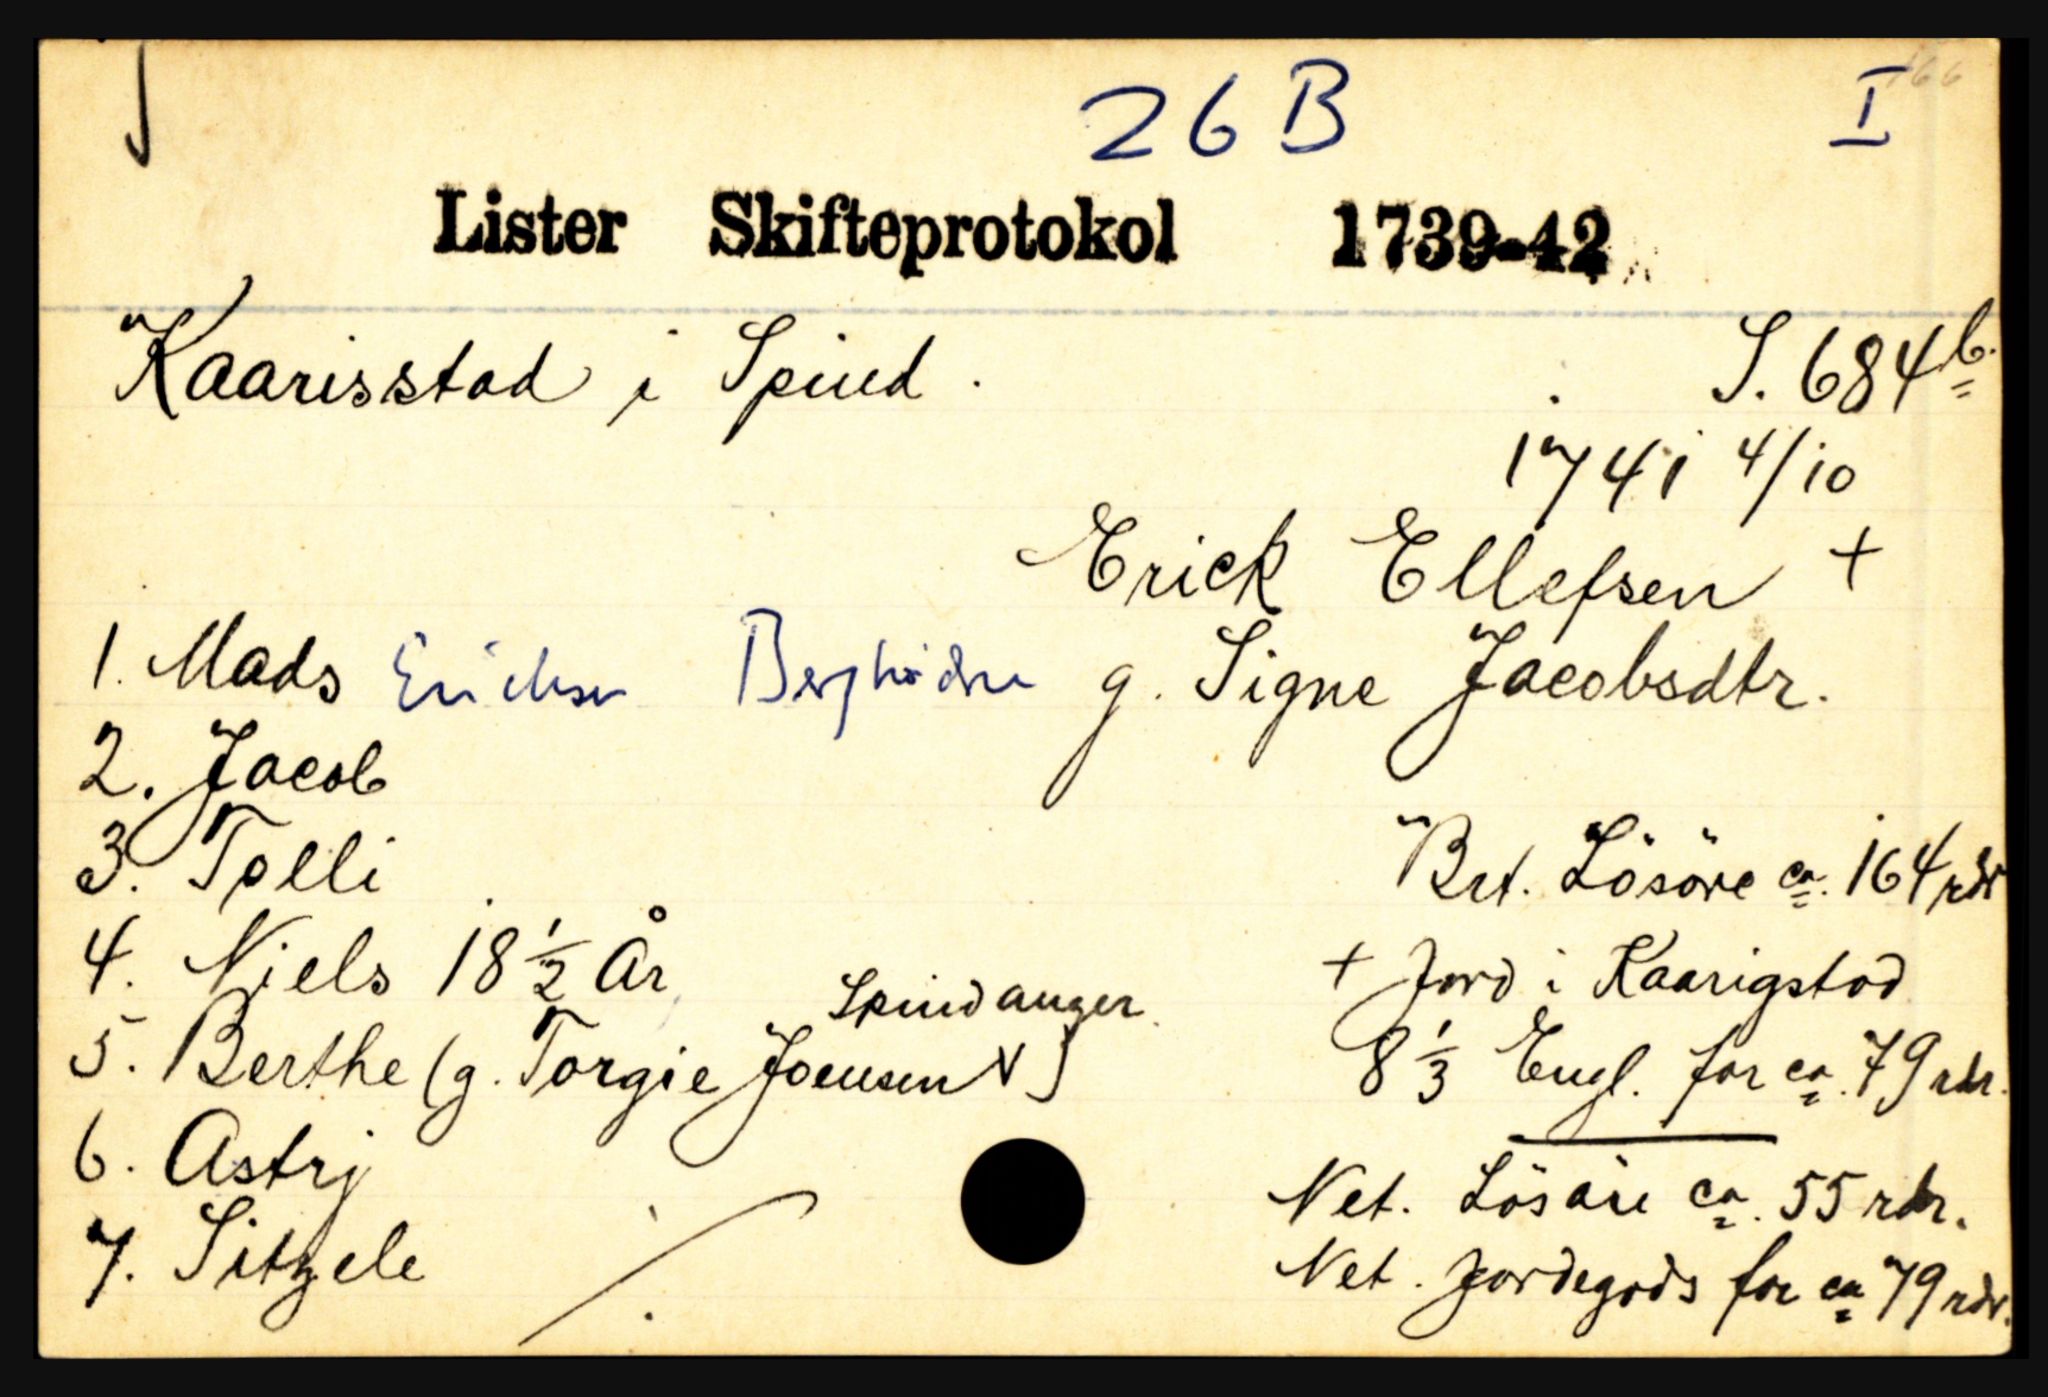 26 B I
Lister Skifteprotokol 1739-42
Kaarisstad i Spind. S. 684 b.
1741 4/10
Erick Ellefsen +
1. Mads Erichsen g. Signe Jacobsdtr.
2. Jacob
3. Tolli Brt. Lösöre ca. 164 rdr
4. Niels 18 1/2 År + Jord i Kaarigstad
Spindanger
5. Berthe (g. Torgie Joensen V) 8 1/3 Engl. for ca. 79 rdr.
6. Astrj Net. Lösöre ca. 55 rdr.
7. Sitzele Net. Jordegods for ca 79 rdr.